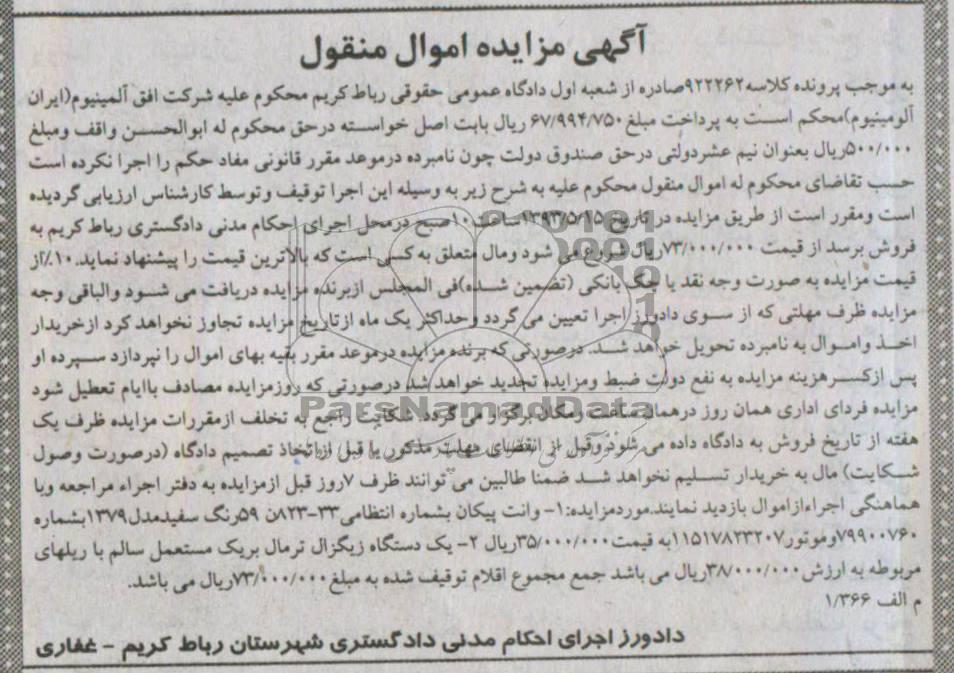 آگهی مزایده اموال منقول
به موجب پرونده کلاسه ۹۲۲۲۶۲صادره از شعبه اول دادگاه عمومی حقوقی رباط کریم محکوم علیه شرکت افق آلمینیوم(ایران
آلومینیوم)محکم است به پرداخت مبلغ ۶۷/۹۹۴/۷۵۰ ریال بابت اصل خواسته درحق محکوم له ابوالحسن واقف ومبلغ
۵۰۰/۰۰۰ریال بعنوان نیم عشردولتی درحق صندوق دولت چون نامبرده درموعد مقرر قانونی مفاد حکم را اجرا نکرده است
حسب تقاضای محکوم له اموال منقول محکوم علیه به شرح زیر به وسیله این اجرا توقیف وتوسط کارشناس ارزیابی گردیده
است ومقرر است از طریق مزایده در تاریخ ۱۳۹۳/۵/۱۵ساعت ۱۰صبح درمحل اجرای احکام مدنی دادگستری رباط کریم به
فروش برسد از قیمت ۷۳/۰۰۰/۰۰۰ریال شروع می شود ومال متعلق به کسی است که بالاترین قیمت را پیشنهاد نماید.۱۰٪از
قیمت مزایده به صورت وجه نقد یا چک بانکی (تضمین شده)فی المجلس ازبرنده مزایده دریافت می شود والباقی وجه
مزایده ظرف مهلتی که از سوی دادورز اجرا تعیین می گردد وحداکثر یک ماه ازتاریخ مزایده تجاوز نخواهد کرد ازخریدار
اخذ واموال به نامبرده تحویل خواهد شد. درصورتی که برنده مزایده درموعد مقرر بقیه بهای اموال را نپردازد سپرده او
پس ازکسرهزینه مزایده به نفع دولت ضبط ومزایده تجدید خواهد شد درصورتی که روزمزایده مصادف باایام تعطیل شود
مزایده فردای اداری همان روز درهمان ساعت ومکان برگزار می گردد. شکایت راجع به تخلف ازمقررات مزایده ظرف یک
هفته از تاریخ فروش به دادگاه داده می شود وقبل از انقضای مهلت مذکور یا قبل از اتخاذ تصمیم دادگاه (درصورت وصول
شکایت) مال به خریدار تسلیم نخواهد شد ضمنا طالبین می توانند ظرف ۷روز قبل ازمزایده به دفتر اجراء مراجعه وبا
هماهنگی اجراءازاموال بازدید نمایند.موردمزایده:۱- وانت پیکان بشماره انتظامی۳۳-۸۲۳ن ۵۹رنگ سفیدمدل۱۳۷۹بشماره
۷۹۹۰۰۷۶۰وموتور۱۱۵۱۷۸۲۳۲۰۷به قیمت۳۵/۰۰۰/۰۰۰ریال ۲- یک دستگاه زیگزال ترمال بریک مستعمل سالم با ریلهای
مربوطه به ارزش ۳۸/۰۰۰/۰۰۰ریال می باشد جمع مجموع اقلام توقیف شده به مبلغ ۷۳/۰۰۰/۰۰۰ریال می باشد.
م الف ۱/۳۶۶
دادورز اجرای احکام مدنی دادگستری شهرستان رباط کریم - غفاری
ParsNamadData